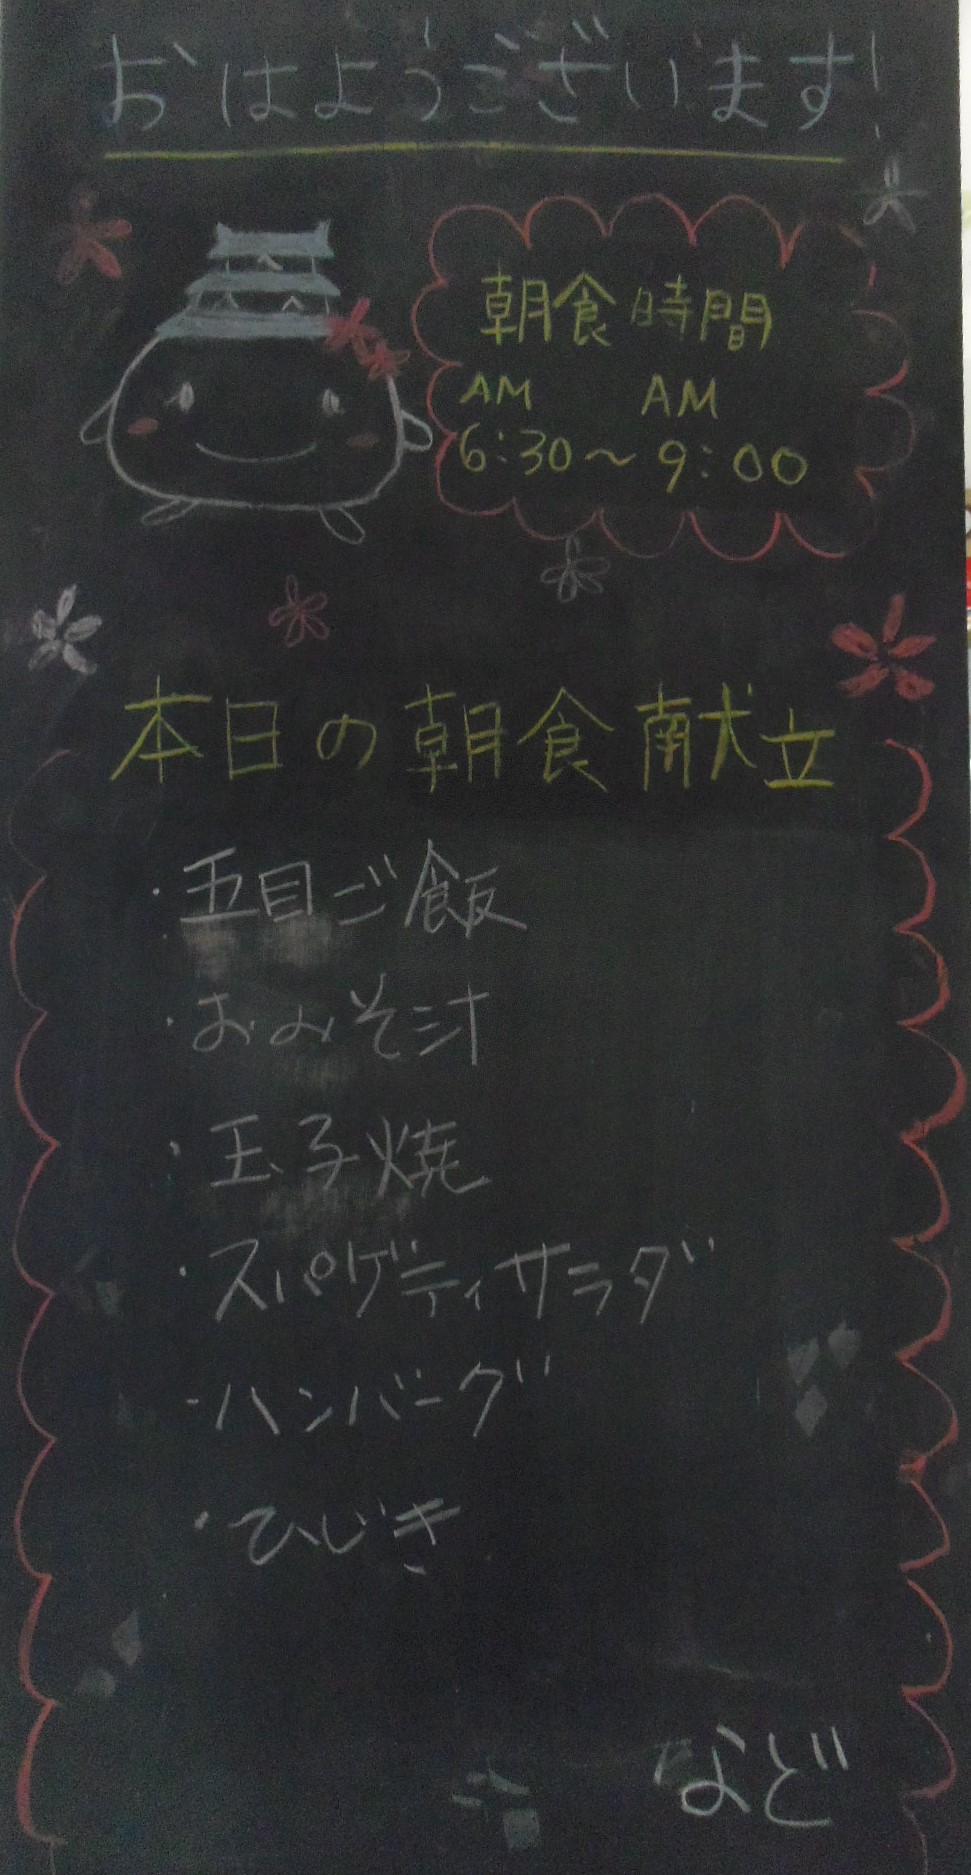 おはようございます!
朝食時間
AM AM
6:30～9:00
本日の朝食献立
・五目ご飯
・おみそ汁
・玉子焼
・スパゲティサラダ
・ハンバーグ
・ひじき
など